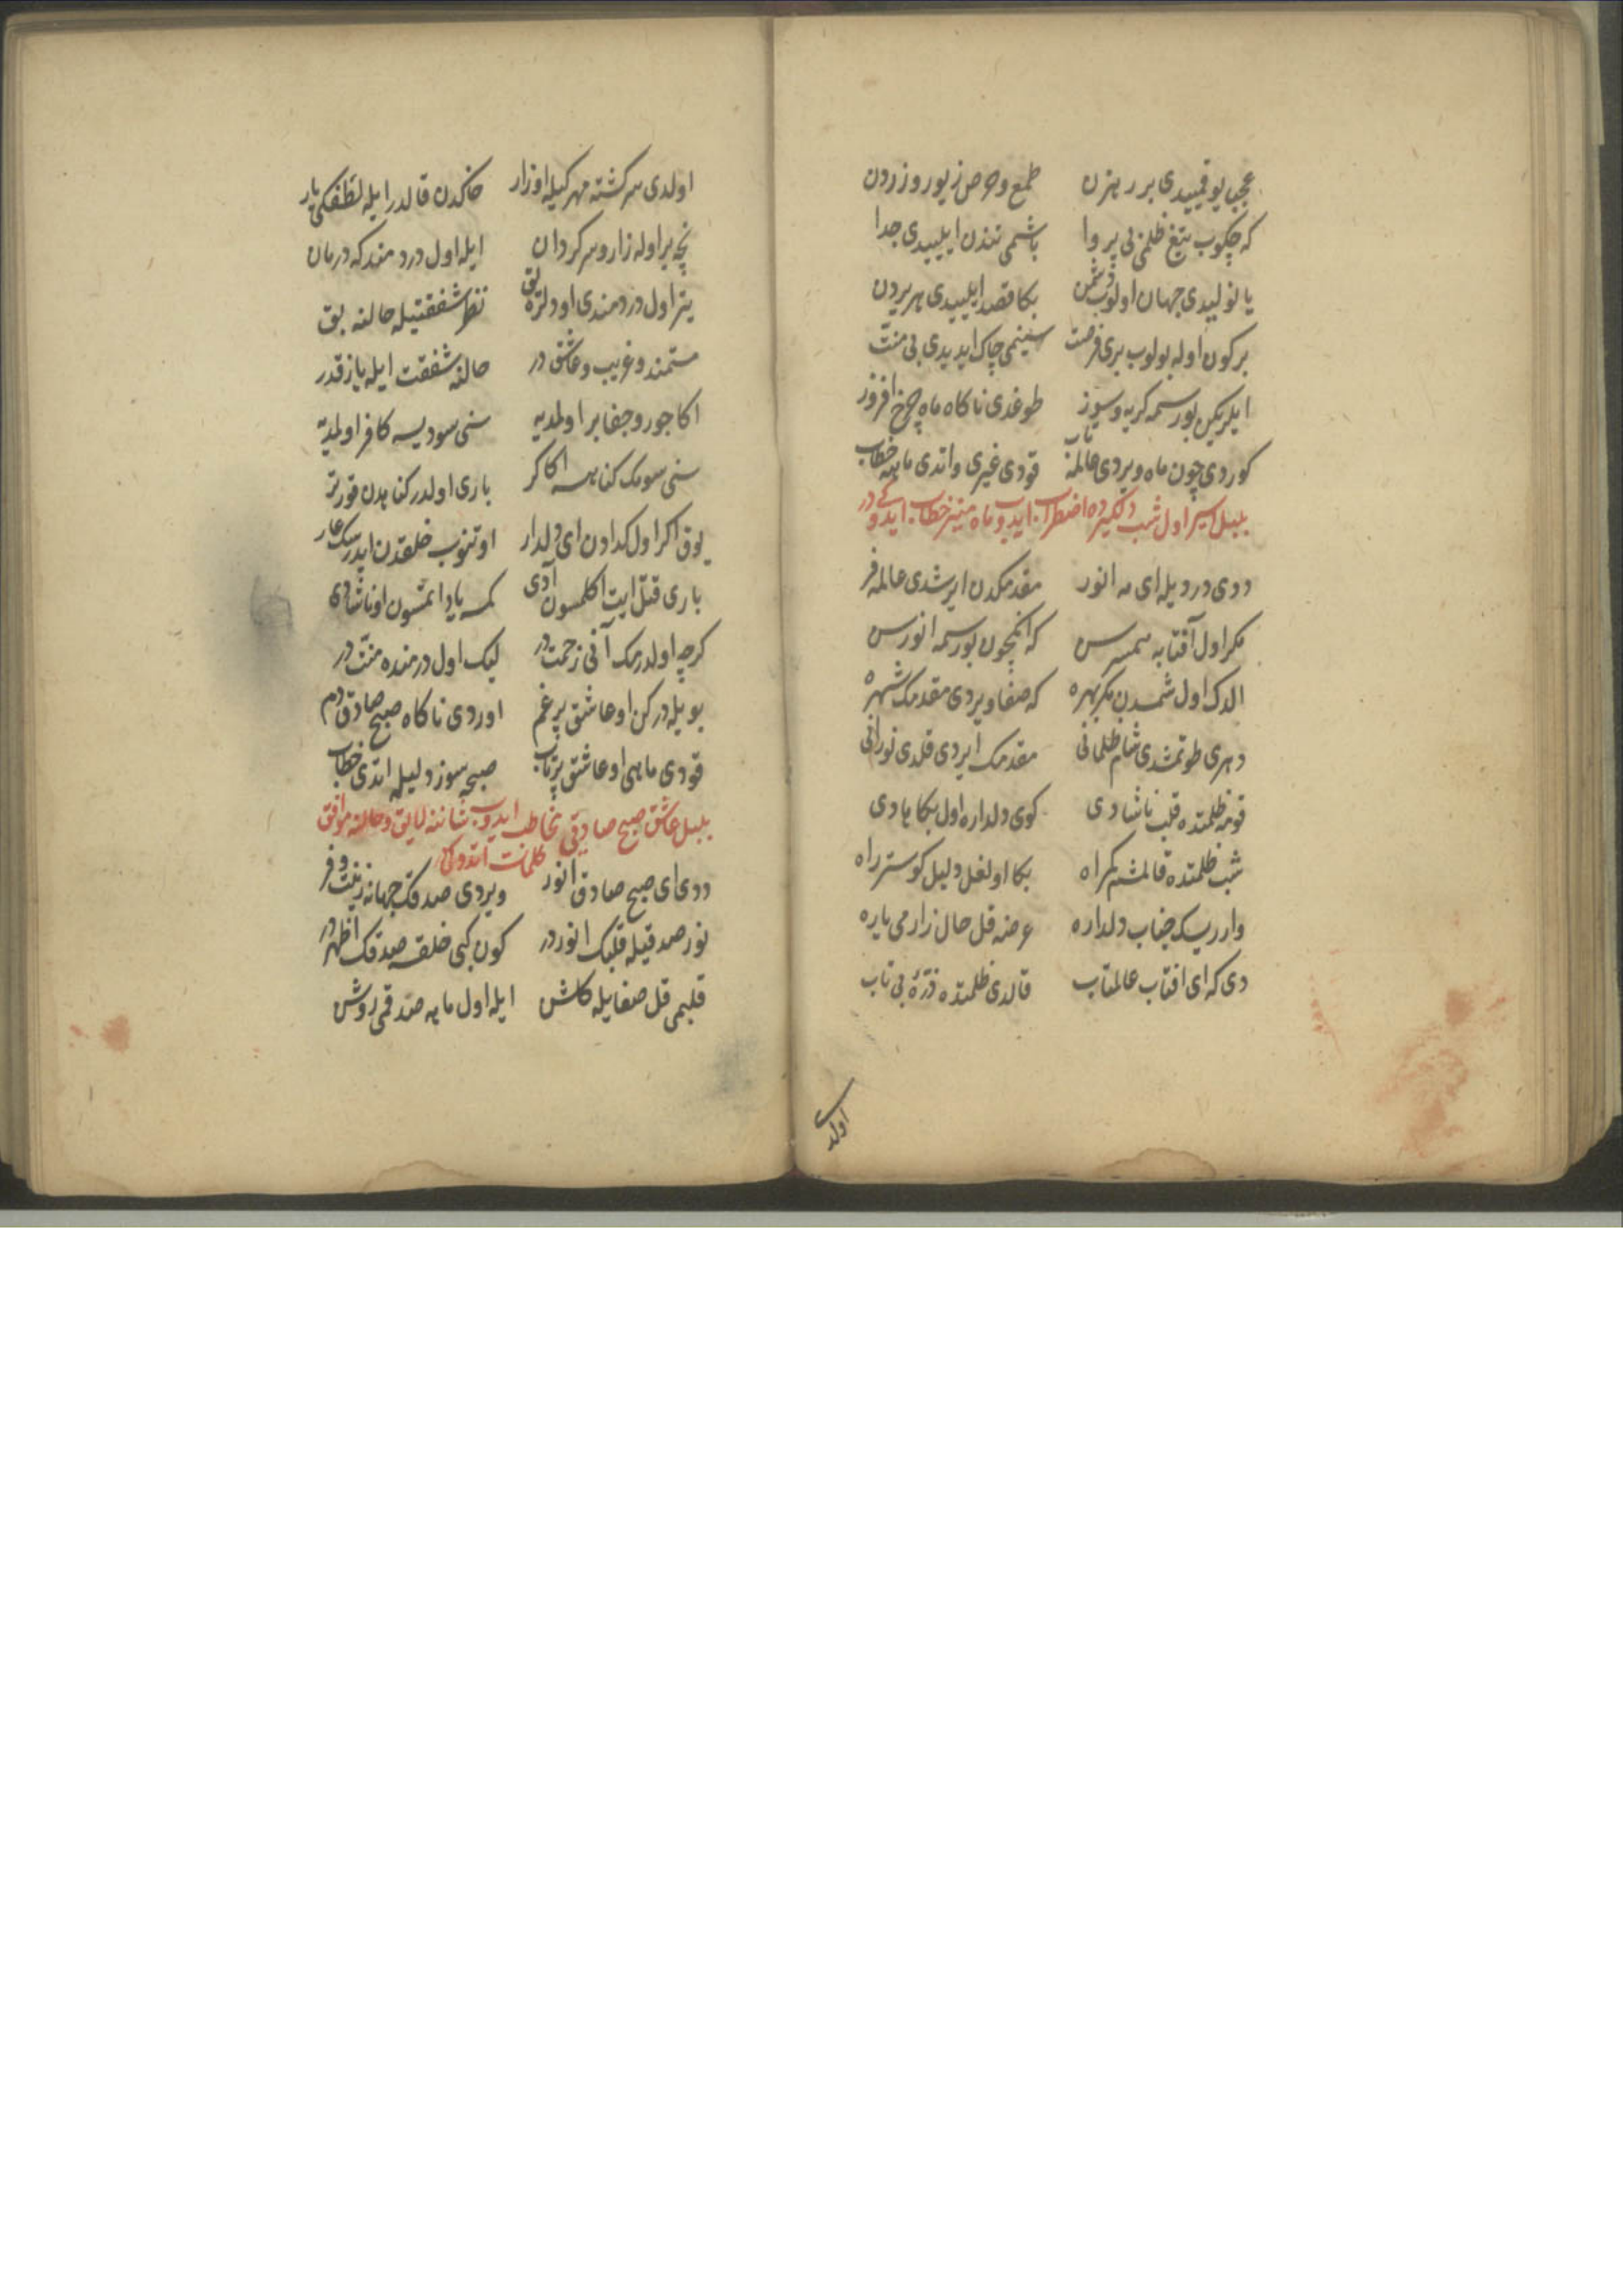 عجب یوقمیدی بر رهزن طمع و حرص زیور و زردن
که چکوب تیغ ظلمی بی پروا باشمی تندن ایلییدی جدا
یا نولیدی جهان اولوب دشمن بکا قصد ایلییدی هر یردن
بر کون اوله بولوب بری فرصت سینمی چاک ایدیدی بی منت
ایلریکن بو رسمه کریه و سوز طوغدی ناکاه ماه چرخ افروز
کوردی چون ماه ویردی عالمه تاب قودی غیری و اتدی ماهه خطاب
بلبل اسیر اول شب دلکیرده اضطراب ایدوب ماه منیره خطاب ایدوکی در
ددی دردیله ای مه انور مقدمکدن ایرشدی عالمه فر
مکر اول آفتابه همسرسن که انکچون بو رسمه انورسن
الدک اول شمسدن مکر بهره که صفا ویردی مقدمک شهره
دهری طوتمشدی شام ظلمانی مقدمک ایردی قلدی نورانی
قومه ظلمتده قلب ناشادی کوی دلداره اول بکا هادی
شب ظلمتده قالمشم کمراه بکا اولغل دلیل کوستر راه
وار ریسک جناب دلداره عرضه قل حال زارمی یاره
دی که ای افتاب عالمتاب قالدی ظلمتده ذرهٔ بی تاب
اولدی
اولدی سرکشته مهرکیله او زار خاکدن قالدر ایله لطفکی یار
نچه بر اوله زار و سرکردان ایله اول دردمندکه درمان
یتر اول دردمندی اودلره یق نظر شفقتیله حالنه بق
مستمند و غریب و عاشق در حالنه شفقت ایله یازقدر
اکا جور و جفا بر اولمدیه سنی سودیسه کافر اولمدیه
سنی سومک کناهسه اکا کر باری اولدر کناهدن قورتر
یوق اکر اول کدادن ای دلدار اوتنوب خلقدن ایدرسک عار
باری قتل ایت اکلمسون آدی کمسه یاد اتمسون او ناشادی
کرچه اولدرمک آنی زحمت در لیک اول درمنده منت در
بویله درکن او عاشق پر غم اوردی ناکاه صبح صادق دم
قودی ماهی او عاشق پرتاب صبحه سوز دلیله اتدی خطاب
بلبل عاشق صبح صادقی مخاطب ایدوب شاننه لایق و حالنه موافق
کلمات اتدوکی
ددی ای صبح صادق انور ویردی صدقک جهانه زینت و فر
نور صدقیله قلبک انوردر کون کبی خلقه صدقک اظهردر
قلبمی قل صفایله کلشن ایله اول ماهه صدقمی روشن